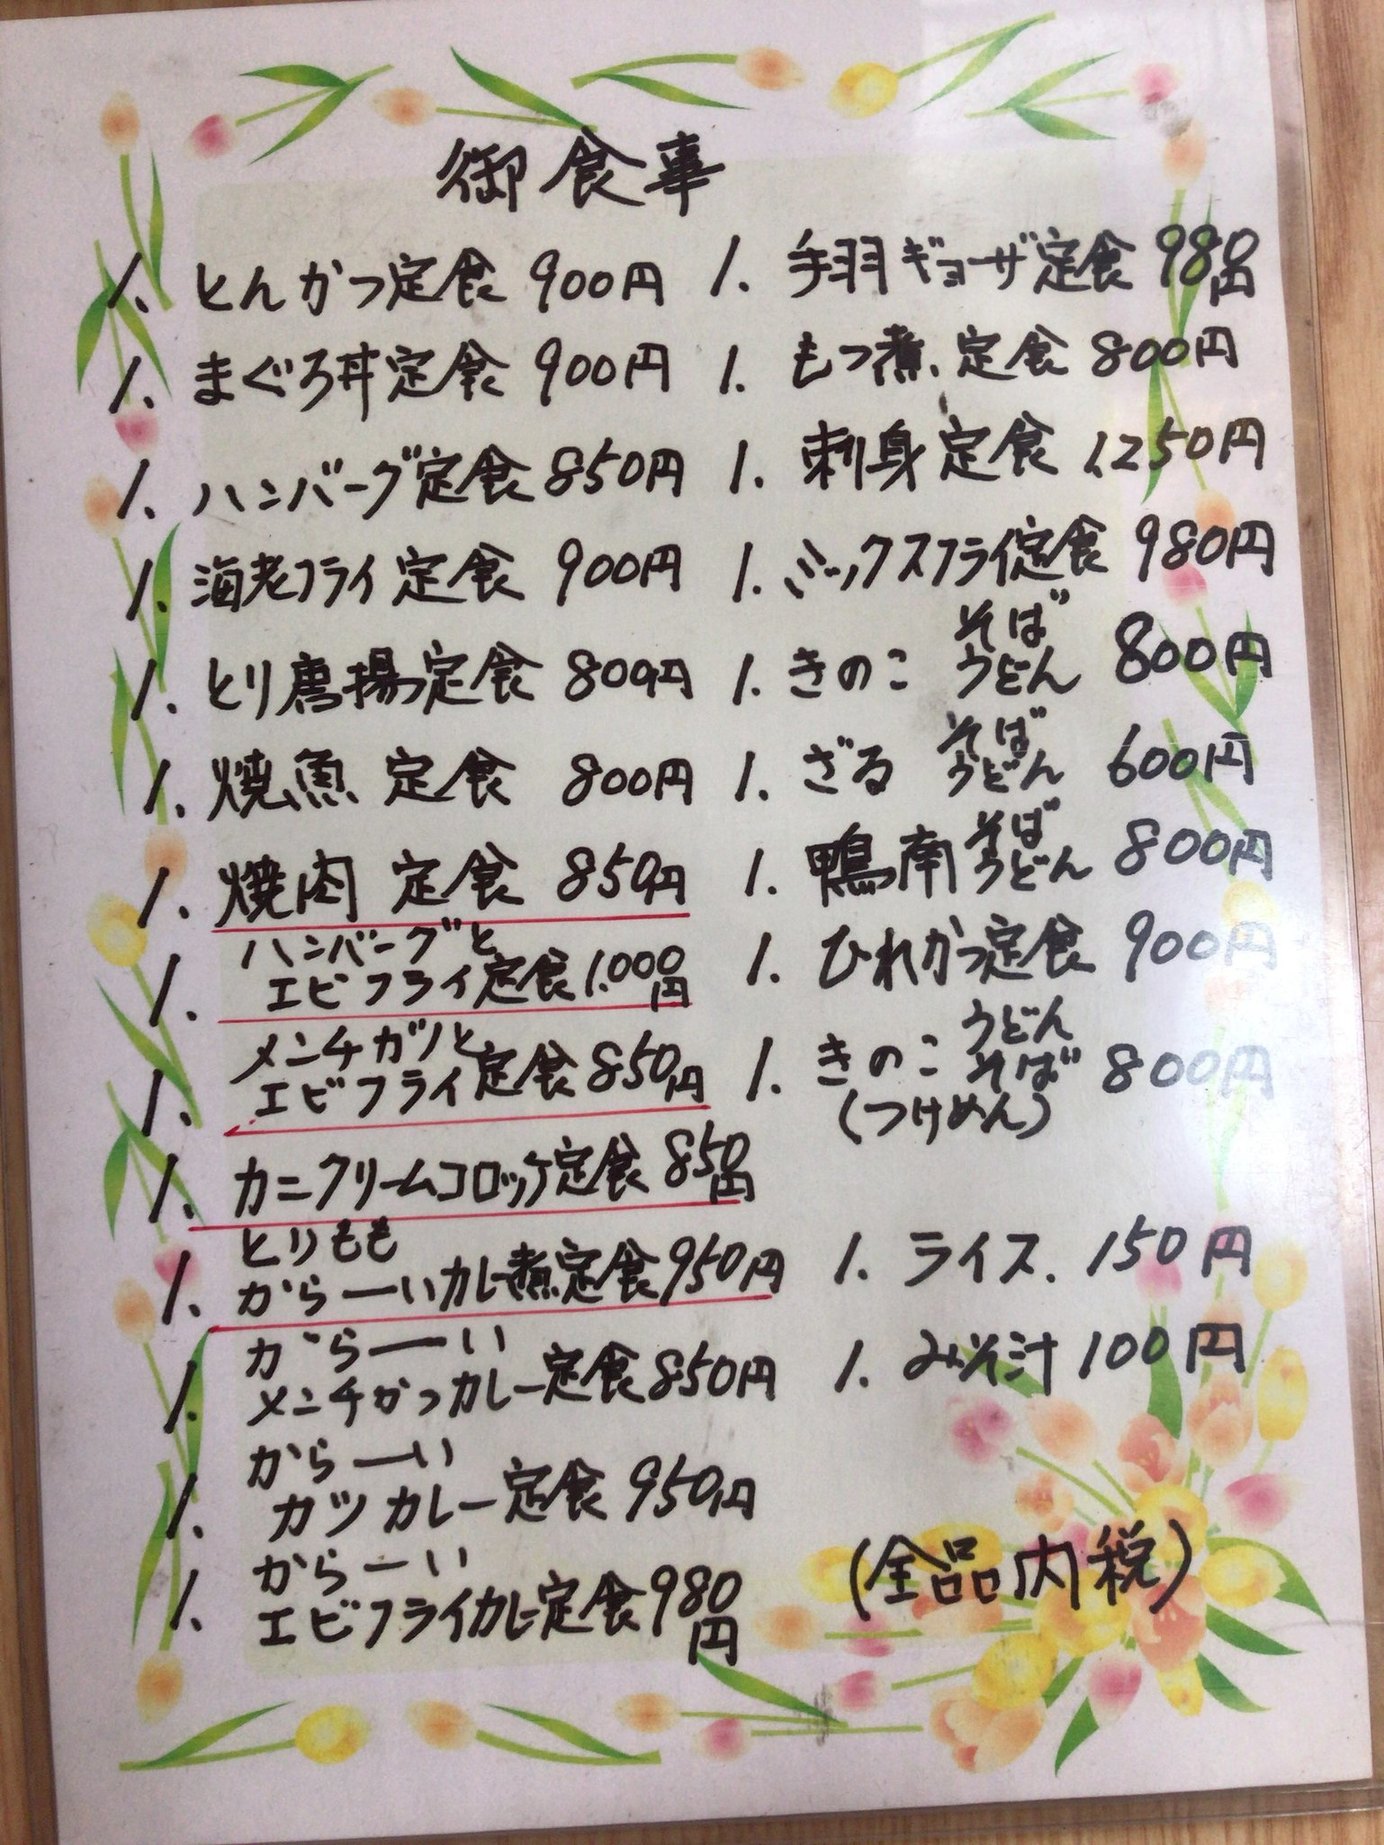 御食事
1. とんかつ定食 900円
1. まぐろ丼定食 900円
1. ハンバーグ定食 850円
1. 海老フライ定食 900円
1. とり唐揚定食 800円
1. 焼魚定食 800円
1. 焼肉定食 850円
ハンバーグと
1. エビフライ定食 1.000円
メンチカツと
1. エビフライ定食 850円
1. カニクリームコロッケ定食 850円
とりもも
1. からーいカレー煮定食 950円
からーい
1. メンチかつカレー定食 850円
からーい
1. カツカレー定食 950円
からーい
1. エビフライカレー定食 980円
1. 手羽ギョーザ定食 980円
1. もつ煮定食 800円
1. 刺身定食 1,250円
1. ミックスフライ定食 980円
そば
1. きのこ うどん 800円
そば
1. ざる うどん 600円
そば
1. 鴨南 うどん 800円
1. ひれかつ定食 900円
うどん
1. きのこ そば 800円
(つけめん)
1. ライス. 150円
1. みそ汁 100円
(全品内税)